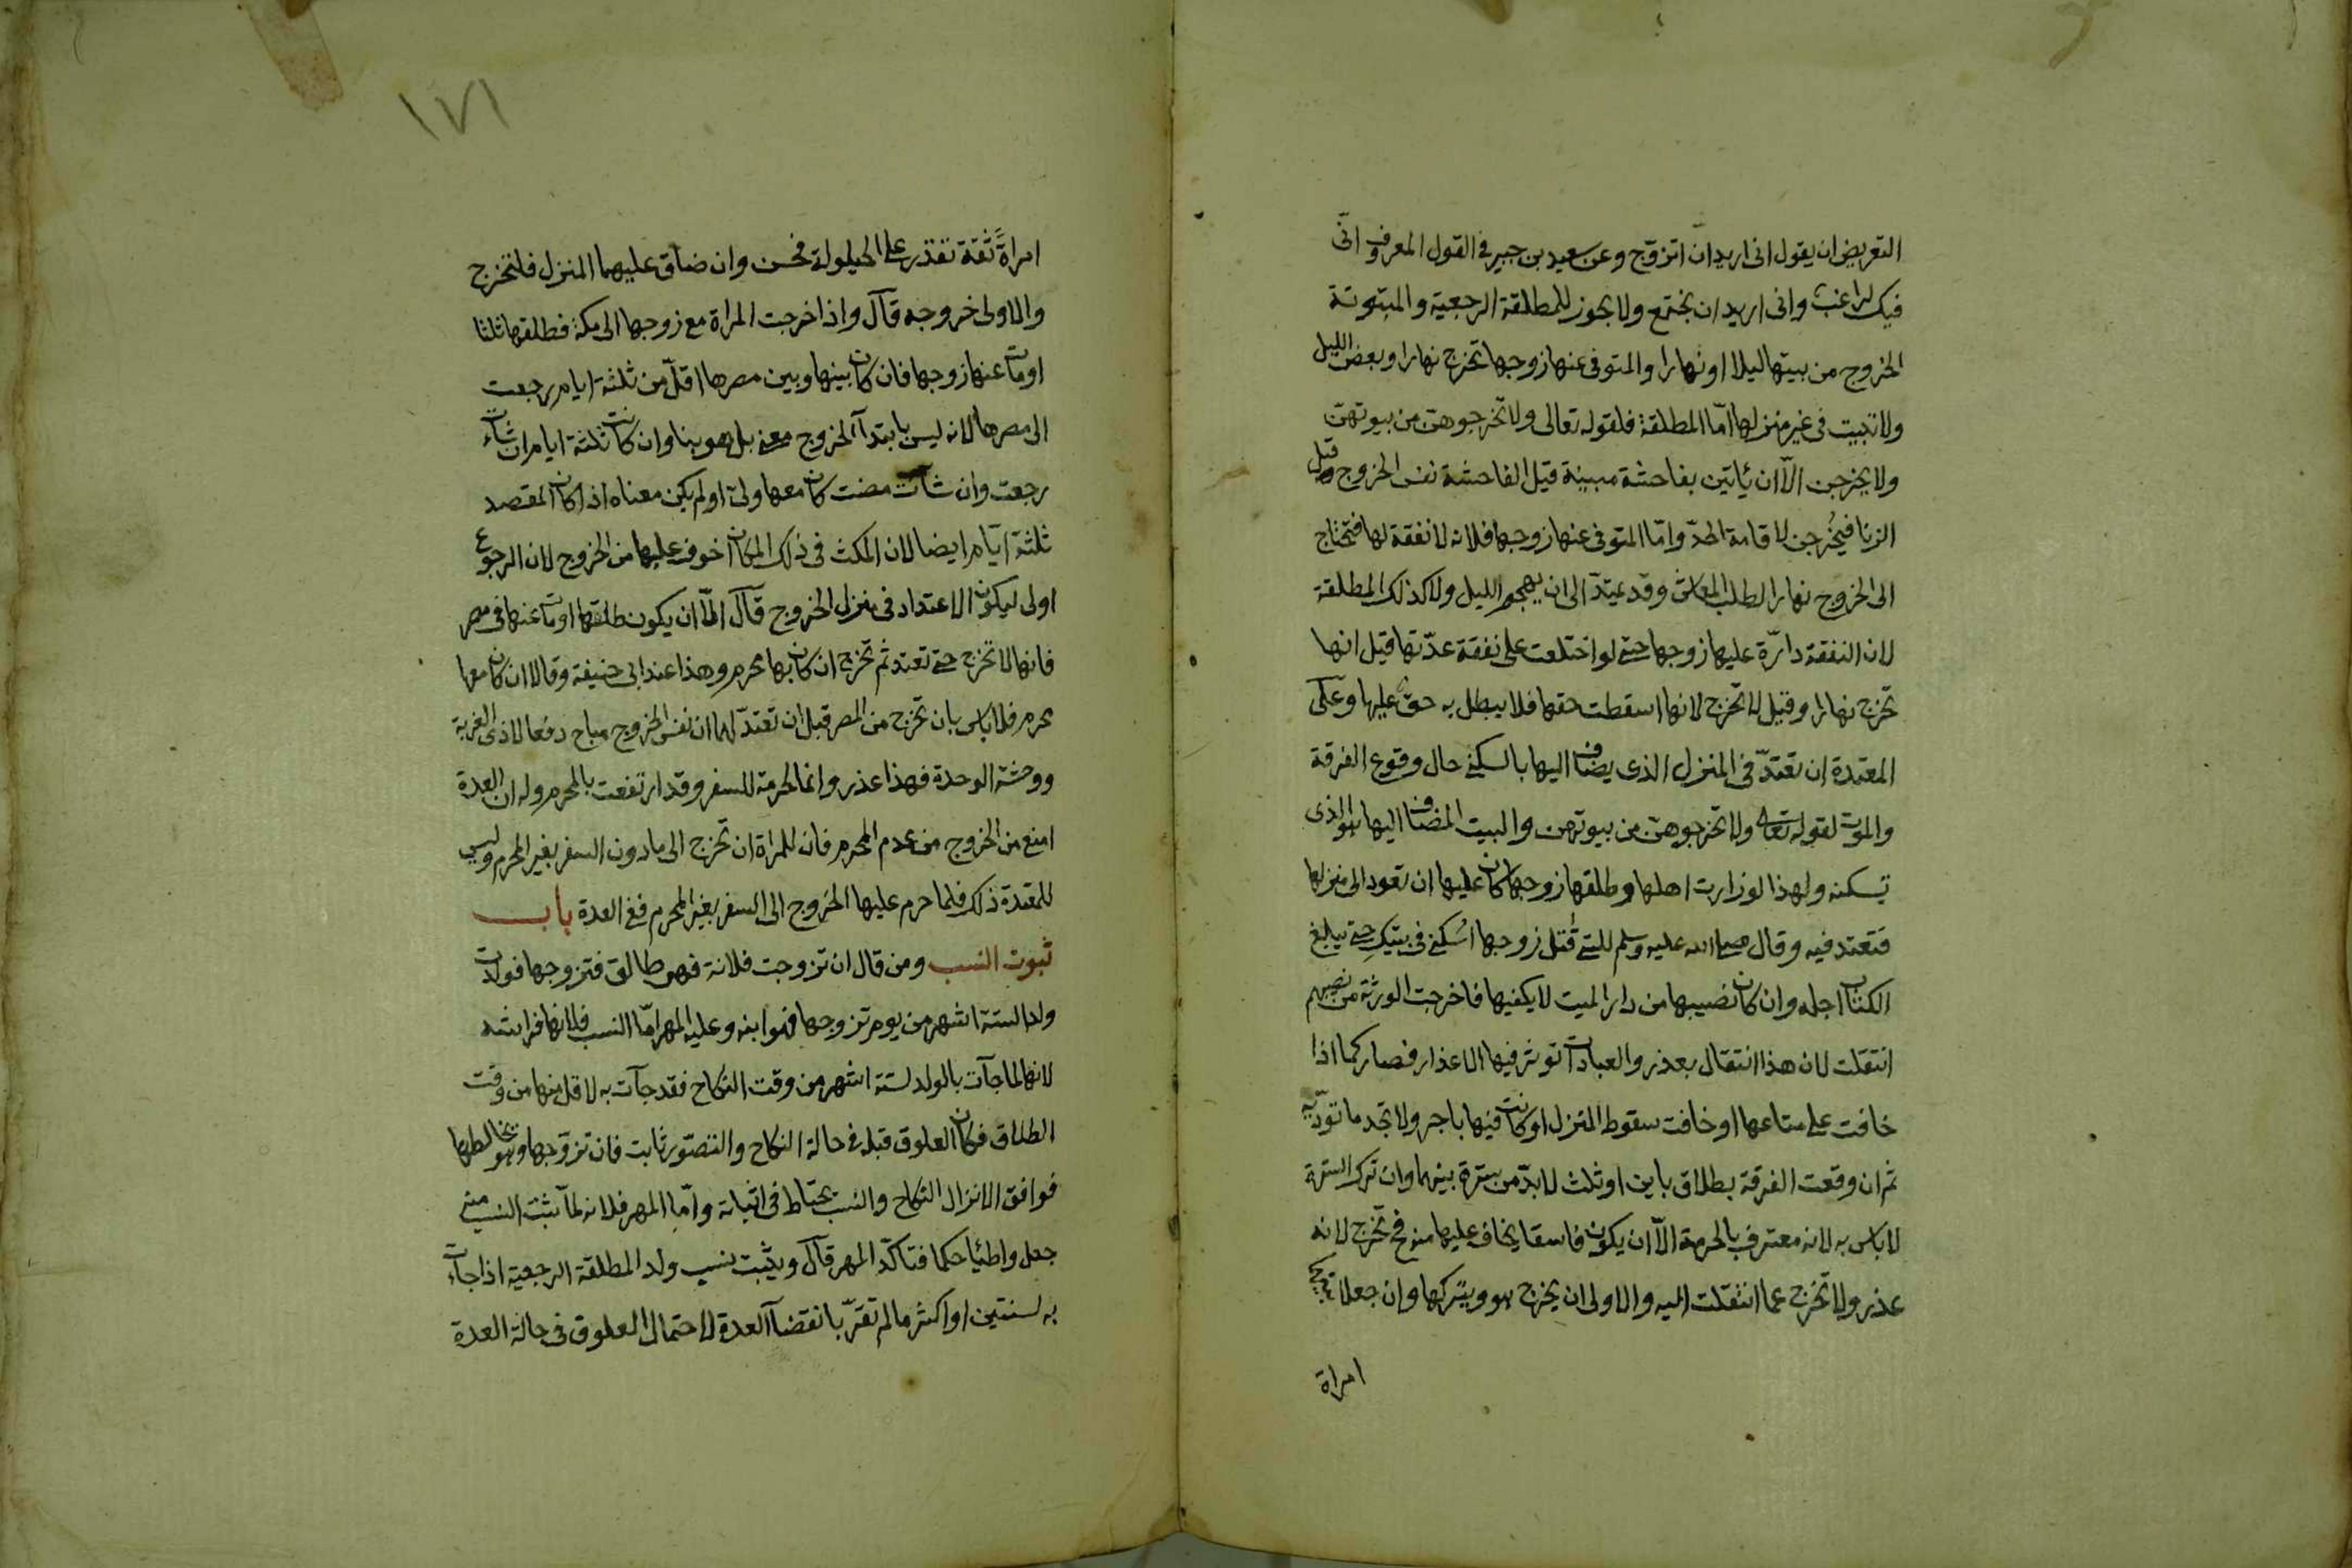 التعريض ان يقول انى اريد ان اتزوج وعن سعيد بن جبير فى القول المعروف انى
فيك لراغب وانى اريد ان نجتمع ولا يجوز للمطلقة الرجعية والمبتوتة
الخروج من بيتها ليلا او نهارا والمتوفى عنها زوجها تخرج نهارا وبعض الليل
ولا تبيت فى غير منزلها امّا المطلقة فلقوله تعالى ولا تخرجوهن من بيوتهن
ولا يخرجن الّا ان يأتين بفاحشة مبينة قيل الفاحشة نفس الخروج وقيل
الزنا فيخُرجن لاقامة الحدّ وامّا المتوفى عنها زوجها فلانه لا نفقة لها فتحتاج
الى الخروج نهارا لطلب المعاش وقد يمتدّ الى ان يهجم الليل ولا كذلك المطلقة
لان النفقة دارّة عليها زوجها حتى لو اختلعت على نفقة عدّتها قيل انها
تخرج نهارا وقيل لا تخرج لانها اسقطت حقها فلا يبطل به حق عليها وعلى
المعتدة ان تعتدّ فى المنزل الذى يضاف اليها بالسكنى حال وقوع الفرقة
والموت لقوله تعالى ولا تخرجوهن من بيوتهن والبيت المضاف اليها هو الذى
تسكنه ولهذا لو زارت اهلها وطلقها زوجها كان عليها ان تعود الى منزلها
فتعتد فيه وقال صلى الله عليه وسلم للتى قُتل زوجها اسُكنى فى بيتكِ حتى يبلغ
الكتاب اجله وان كان نصيبها من دار الميت لا يكفيها فاخرجت الورثة من نصيبهم
انتقلت لان هذا انتقال بعذر والعبادات تؤثر فيها الاعذار فصار كما اذا
خافت على متاعها او خافت سقوط المنزل او كانت فيها باجر ولا تجد ما تؤدّيه
ثم ان وقعت الفرقة بطلاق باين او ثلث لا بدّ من سترة بينهما وان ترك السترة
لا باس به لانه معترف بالحرمة الّا ان يكون فاسقا يخاف عليها منه فح تخرج لانه
عذر ولا تخرج عما انتقلت اليه والاولى ان يخرج هو ويتركها وان جعلا بينهما
امراة
١٧١
امراةً ثقة تقدر على الحيلولة فحسن وان ضاق عليهما المنزل فلتخرج
والاولى خروجه قال واذا خرجت المراة مع زوجها الى مكة فطلقها ثلثا
او مات عنها زوجها فان كان بينها وبين مصرها اقلّ من ثلثة ايام رجعت
الى مصرها لانه ليس بابتداء الخروج معنى بل هو بنا وان كانت ثلثة ايام ان شاءت
رجعت وان شات مضت كان معها ولى او لم يكن معناه اذا كان المقصد
ثلثة ايّام ايضا لان المكث فى ذلك المكان اخوف عليها من الخروج لان الرجوع
اولى ليكون الاعتداد فى منزل الخروج قال الّا ان يكون طلقها او مات عنها فى مصر
فانها لا تخرج حتى تعتد ثم تخرج ان كان بها محرم وهذا عند ابى حنيفة وقالا ان كان معها
محرم فلا باس بان تخرج من المصر قبل ان تعتدّ لهما ان نفس الخروج مباح دفعا لاذى الغربة
ووحشة الوحدة فهذا عذر وانما الحرمة للسفر وقد ارتفعت بالمحرم وله ان العدة
امنع من الخروج من عدم المحرم فان للمراة ان تخرج الى ما دون السفر بغير المحرم وليس
للمعتدة ذلك فلما حرم عليها الخروج الى السفر بغير المحرم ففى العدة باب
ثبوت النسب ومن قال ان تزوجت فلانة فهى طالق فتزوجها فولدت
ولدا لستة اشهر من يوم تزوجها فهو ابنه وعليه المهر امّا النسب فلانها فراشه
لانها لما جآت بالولد لستة اشهر من وقت النكاح فقد جآت به لاقل منها من وقت
الطلاق فكان العلوق قبله فى حالة النكاح والتصوّر ثابت فان تزوّجها وهو يخالطها
فوافق الانزال النكاح والنسب يحتاط فى اثباته وامّا المهر فلانه لمّا ثبت النسب منه
جعل واطئا حكما فتاكّد المهر قال ويثبت نسب ولد المطلقة الرجعية اذا جاءت
به لسنتين او اكثر ما لم تقرّ بانقضآ العدة لاحتمال العلوق فى حالة العدة